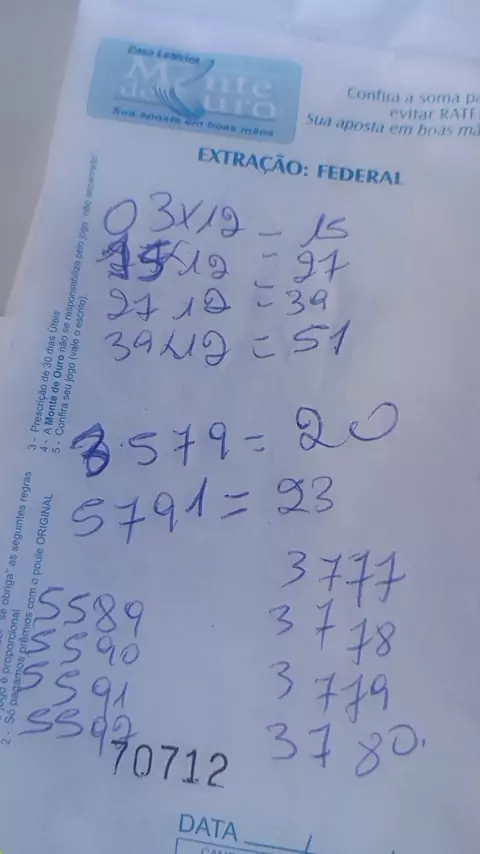 Casa Lotérica
Monte
de Ouro
Sua aposta em boas mãos
Confira a soma
evitar
Sua aposta em boas
EXTRAÇÃO: FEDERAL
03x12 - 15
15x12 = 27
27 12 = 39
39x12 = 51
3.579 = 20
5791 = 23
3777
3778
3779
3780.
5589
5590
5591
5592
70712
DATA ___/
3 - Prescrição de 30 dias Úteis
4 - A Monte de Ouro não se responsabiliza pelo jogo não encerrado
5 - Confira seu jogo (vale o escrito).
"se obriga" as seguintes regras
jogo é proporcional
2 - Só pagamos prêmios com o poule ORIGINAL